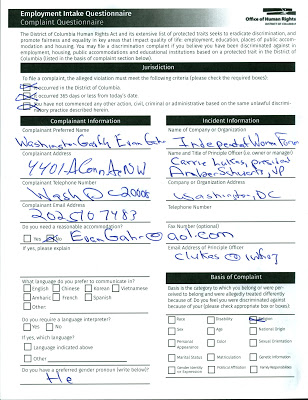 Employment Intake Questionnaire
Complaint Questionnaire
Office of Human Rights
DISTRICT OF COLUMBIA
The District of Columbia Human Rights Act and its extensive list of protected traits seeks to eradicate discrimination, and
promote fairness and equality in key areas that impact quality of life: employment, education, places of public accom-
modation and housing. You may file a discrimination complaint if you believe you have been discriminated against in
employment, housing, public accommodations and educational institutions based on a protected trait in the District of
Columbia (listed in the basis of complaint section below).
Jurisdiction
To file a complaint, the alleged violation must meet the following criteria (check the required boxes).
occurred in the District of Columbia.
occurred 365 days or less from today's date
You have not commenced any other action, civil, criminal or administrative based on the same unlawful discrimi-
natory practice described herein.
Complainant Information
Complainant Preferred Name
Complainant Address
4401-A Conn Av NW
Complainant Telephone Number
Wash DC 20008
Complainant Email Address
202
Do you need a reasonable accommodation?
Yes No
If yes, please explain
What language do you prefer to communicate in?
English Chinese Korean Vietnamese
Amharic French Spanish
Other
Do you require a language interpreter?
Yes No
If yes, which language?
Language indicated above
Other
Do you have a preferred gender pronoun (write below)?
He
Incident Information
Name of Company or Organization
Name and Title of Principle Officer (i.e. owner or manager)
Carrie Lukas, president
VP
Company or Organization Address
Washington, DC
Telephone Number
Fax Number (optional)
aol.com
Email Address of Principle Officer
clukas@iwf.org
Basis of Complaint
Basis is the category to which you belong or were per-
ceived to belong and were allegedly treated differently
because of. Do you feel you were discriminated against
because of your (please check appropriate box or boxes)
Race Disability Religion
Sex Age National Origin
Personal
Appearance Color Sexual Orientation
Marital Status Matriculation Genetic Information
Gender Identity
or Expression Political Affiliation Family Responsibilities